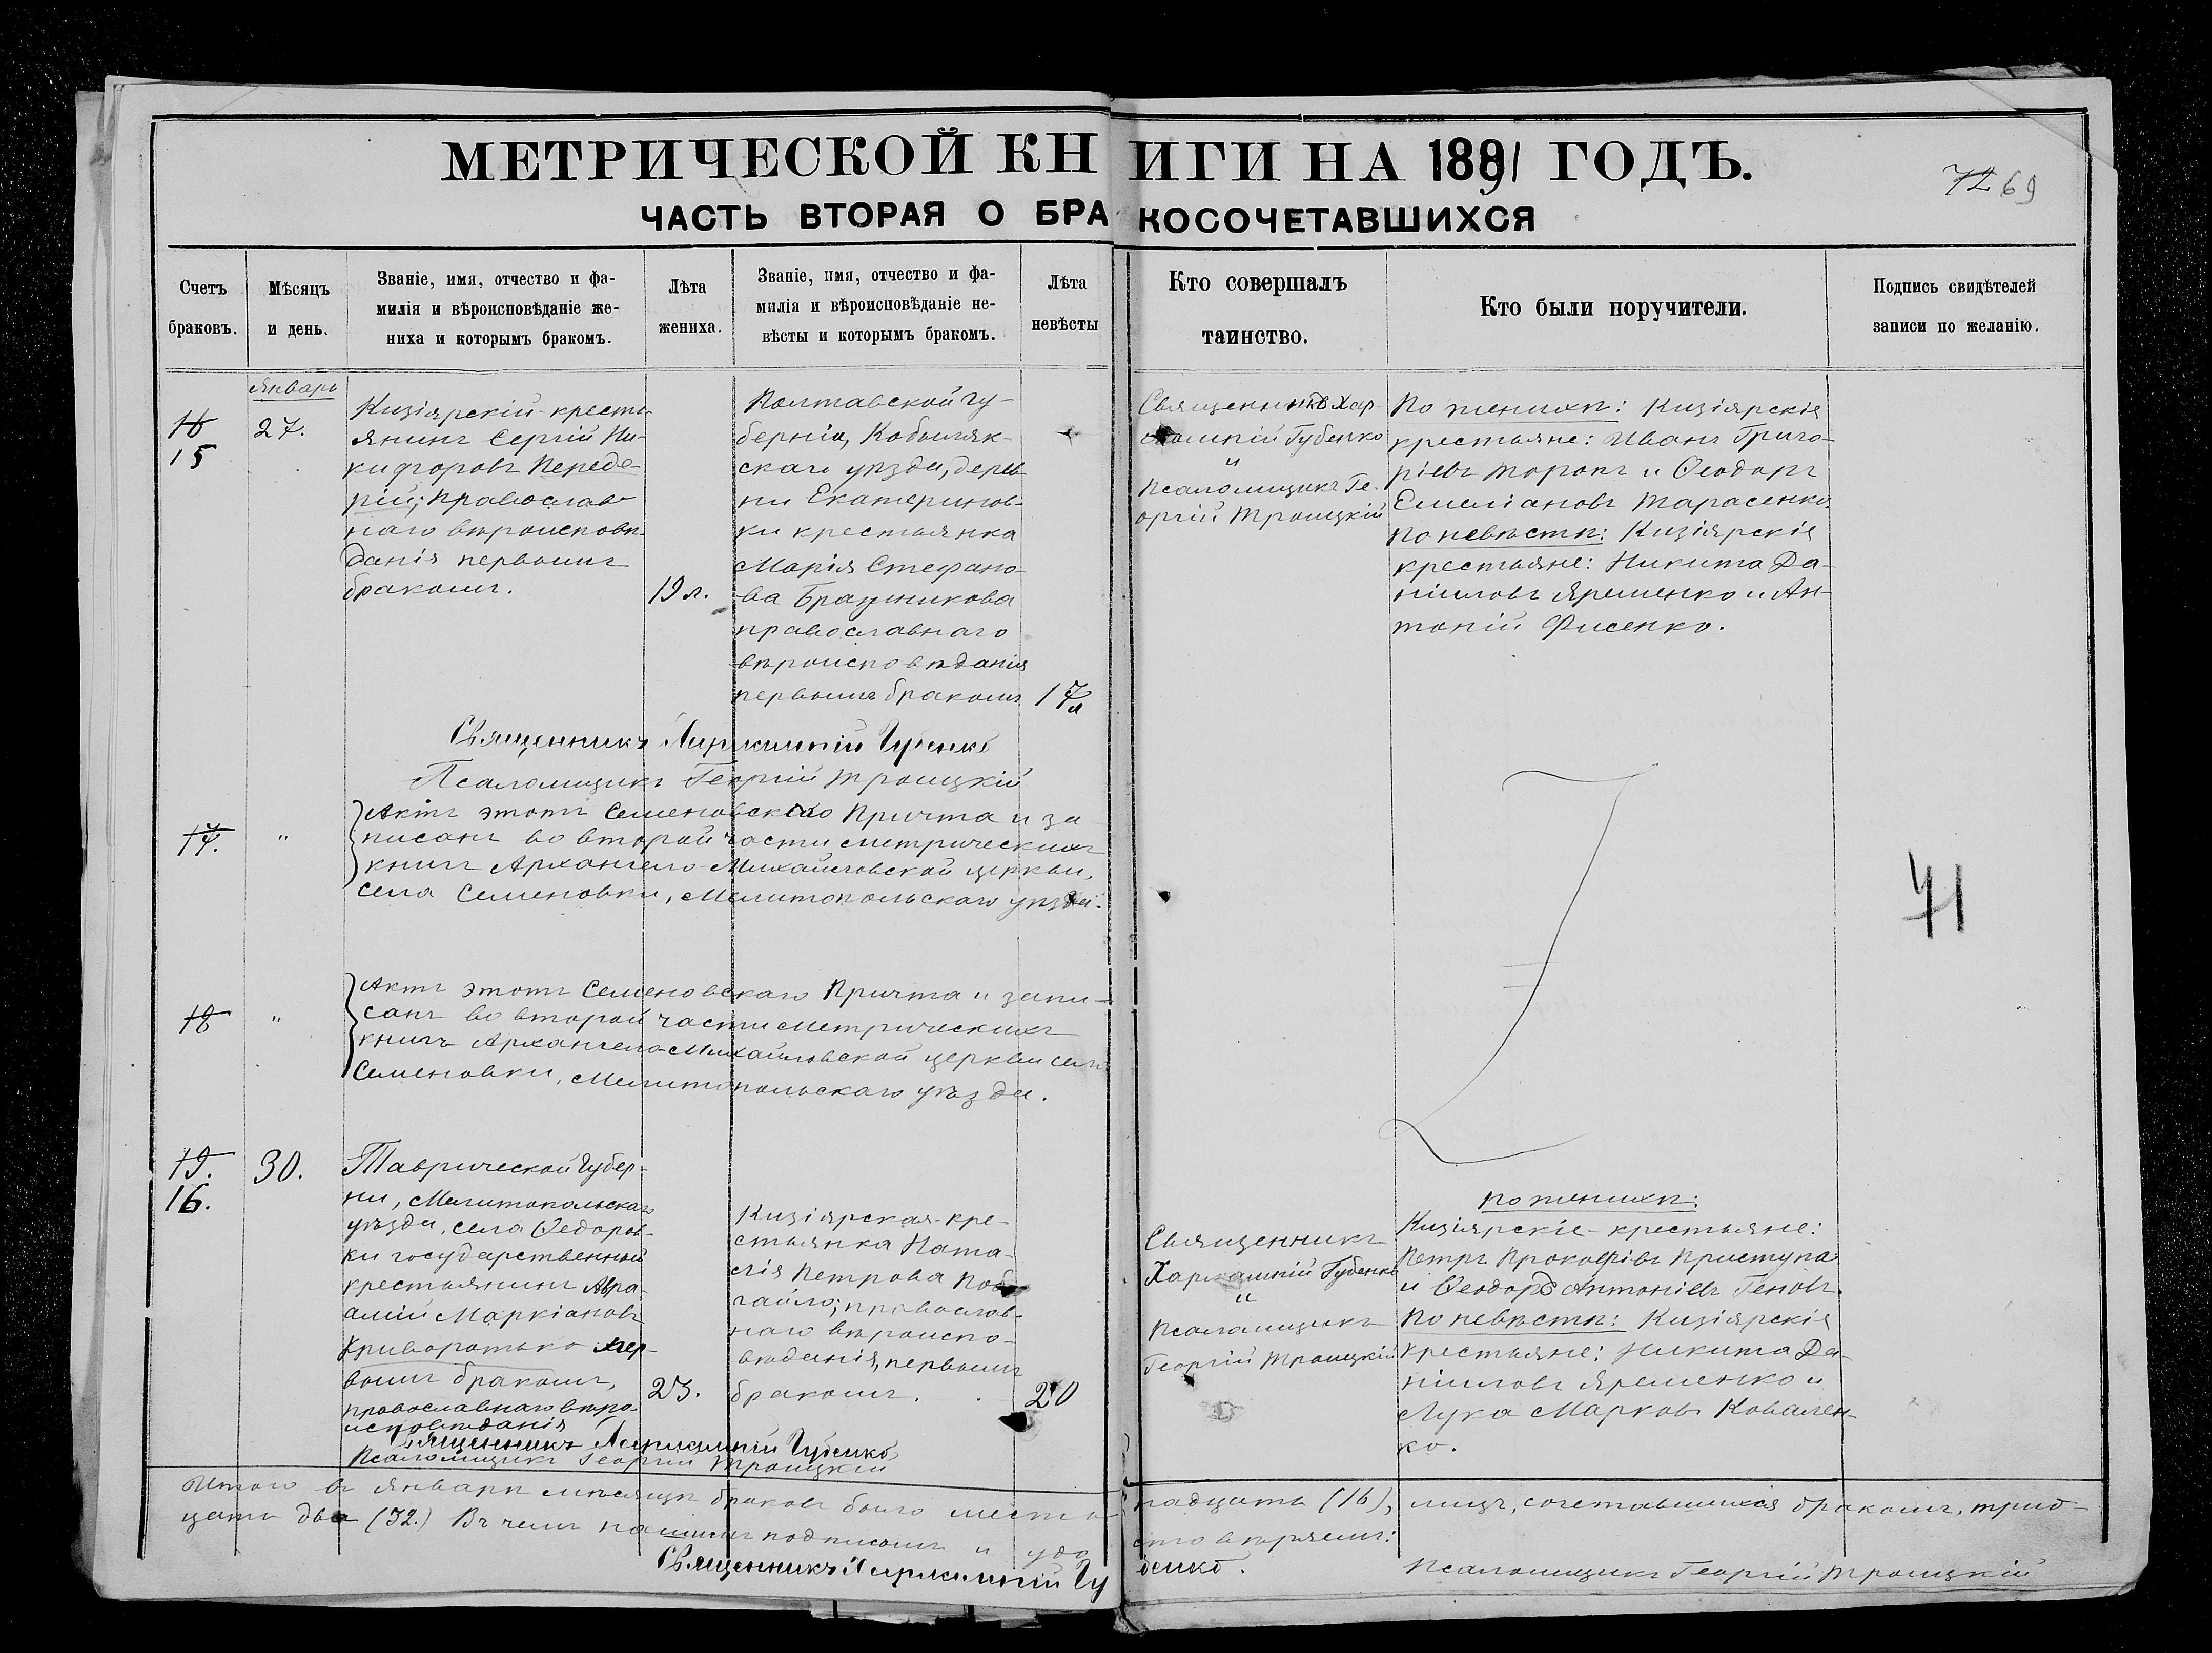 МЕТРИЧЕСКОЙ КНИГИ НА 1891 ГОДЪ.
72 69
ЧАСТЬ ВТОРАЯ О БРАКОСОЧЕТАВШИХСЯ
Счетъ
браковъ.
Мѣсяцъ
и день.
Званіе, имя, отчество и фа-
милія и вѣроисповѣданіе же-
ниха и которымъ бракомъ.
Лѣта
жениха.
Званіе, имя, отчество и фа-
милія и вѣроисповѣданіе не-
вѣсты и которымъ бракомъ.
Лѣта
невѣсты
Кто совершалъ
таинство.
Кто были поручители.
Подпись свидѣтелей
записи по желанію.
Январь
16
15
27.
Кизіярскій-кресть-
янинъ Сергій Ни-
кифоровъ Переде-
рій; православ-
наго вѣроисповѣ-
данія первымъ
бракомъ.
19 л.
Полтавской гу-
берніи, Кобыляк-
скаго уѣзда, дерев-
ни Екатеринов-
ки крестьянка
Марія Стефано-
ва Бражникова
православнаго
вѣроисповѣданія
первымъ бракомъ
17 л
Священникъ Хар-
лампій Губенко
и
Псаломщикъ Ге-
оргій Троицкій
По женихѣ: Кизіярскія
крестьяне: Иванъ Григо-
ріевъ Торопъ и Ѳеодоръ
Емеліановъ Тарасенко.
По невѣстѣ: Кизіярскія
крестьяне: Никита Да-
ніиловъ Яременко и Ан-
тоній Фисенко.
Священникъ Харлампій Губенко
Псаломщикъ Георгій Троицкій
17.
"
Актъ этотъ Семеновскаго Причта и за
писанъ во второй части метрическихъ
книгъ Архангело-Михайловской церкви,
села Семеновки, Мелитопольскаго уѣзда.
71
18
"
Актъ этотъ Семеновскаго Причта и запи-
санъ во второй части метрическихъ
книгъ Архангело-Михайловской церкви села
Семеновки, Мелитопольскаго уѣзда.
19.
16.
30.
Таврической Губер-
ни, Мелитопольскаго
уѣзда, села Ѳедоров-
ки государственный
крестьянинъ Авра-
амій Маркіановъ
Криворотько пер-
вымъ бракомъ,
православнаго вѣро-
исповѣданія
23.
Кизіярская-кре-
стьянка Ната-
лія Петрова
православ-
наго вѣроиспо-
вѣданія, первымъ
бракомъ.
20
Священникъ
Харлампій Губенко
и
Псаломщикъ
Георгій Троицкій
По женихѣ:
Кизіярскіе-крестьяне:
Петръ Прокофіевъ Приступа
и Ѳеодоръ Антоніевъ Геновъ.
По невѣстѣ: Кизіярскія
крестьяне: Никита Да-
ніиловъ Яременко и
Лука Марковъ Ковален-
ко.
Священникъ Харлампій Губенко
Псаломщикъ Георгій Троицкій
Итого въ Январѣ мѣсяцѣ браковъ было шестнадцать (16), лицъ, сочетавшихся бракомъ, трид-
цать два (32.) Въ чемъ нашимъ подписомъ и удостовѣряемъ:
Священникъ Харлампій Губенко.
Псаломщикъ Георгій Троицкій